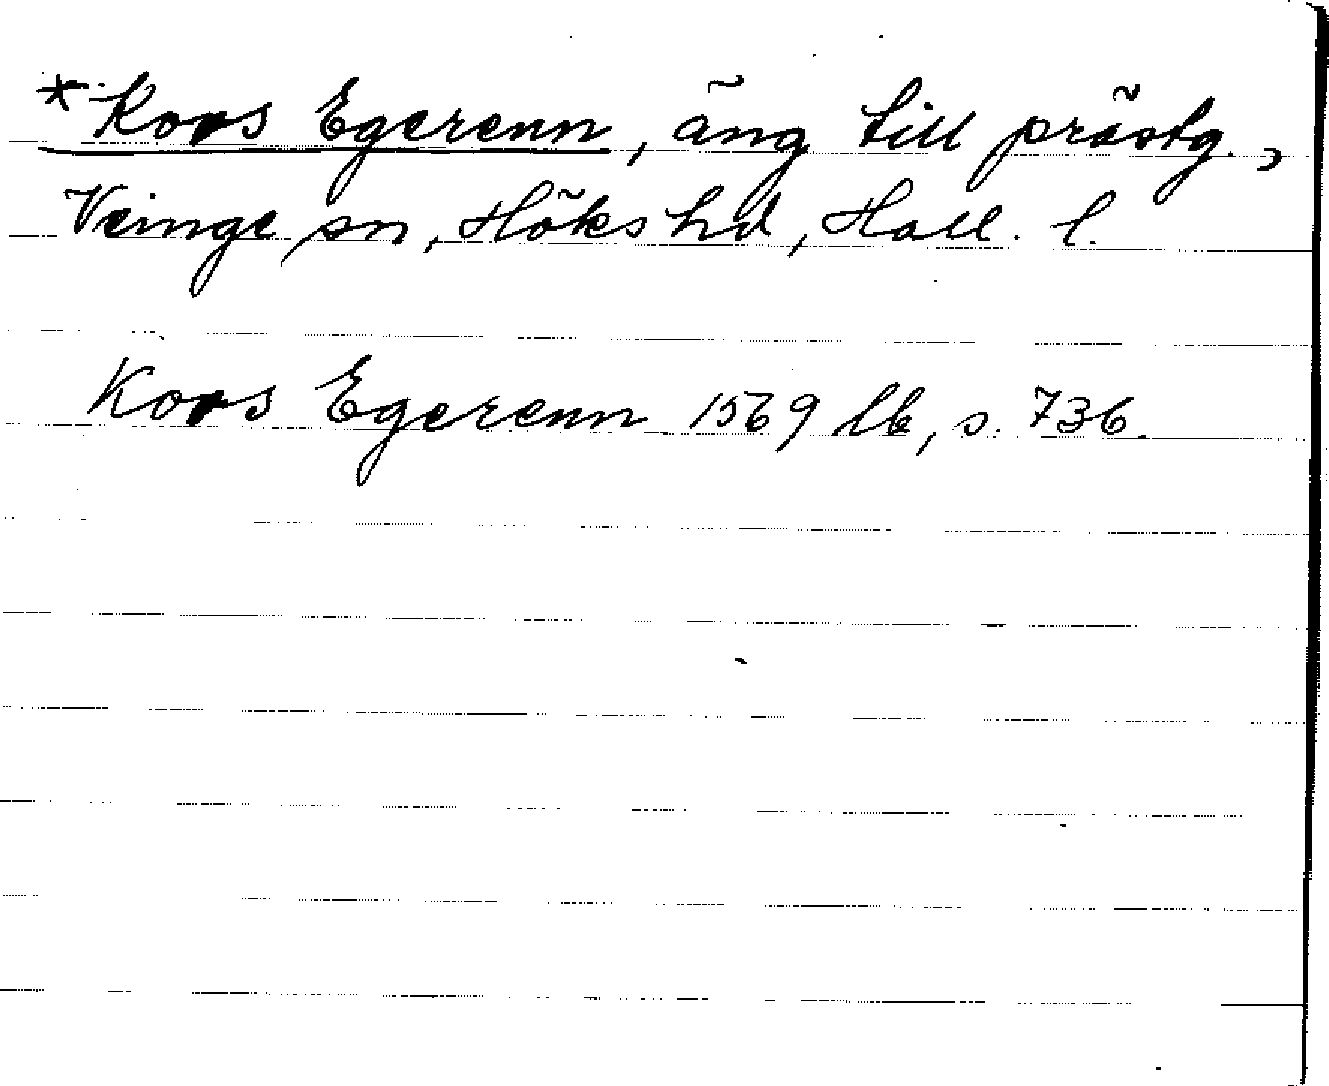 *Kors Egerenn, äng till prästg.,
Veinge sn, Höks hd, Hall. l.
Kors Egerenn 1569 lb, s. 736.